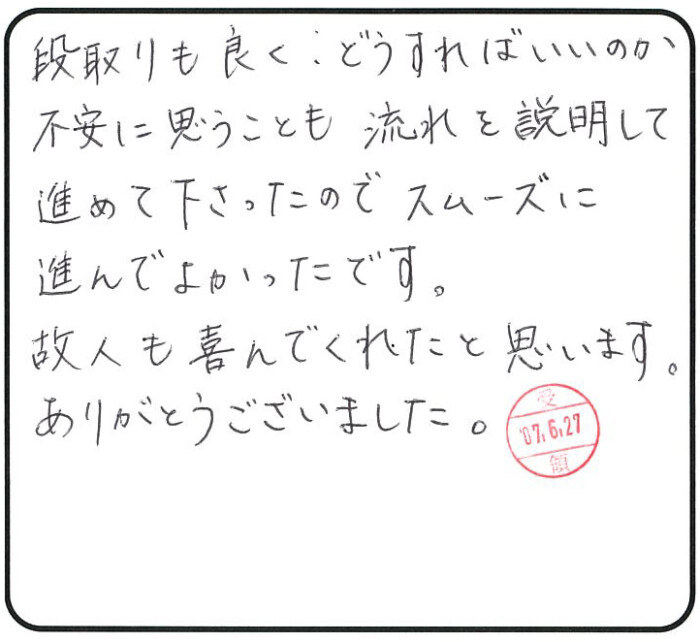 段取りも良く:どうすればいいのか
不安に思うことも 流れを説明して
進めて下さったのでスムーズに
進んでよかったです。
故人も喜んでくれたと思います。
ありがとうございました。
受
'07.6.27
領